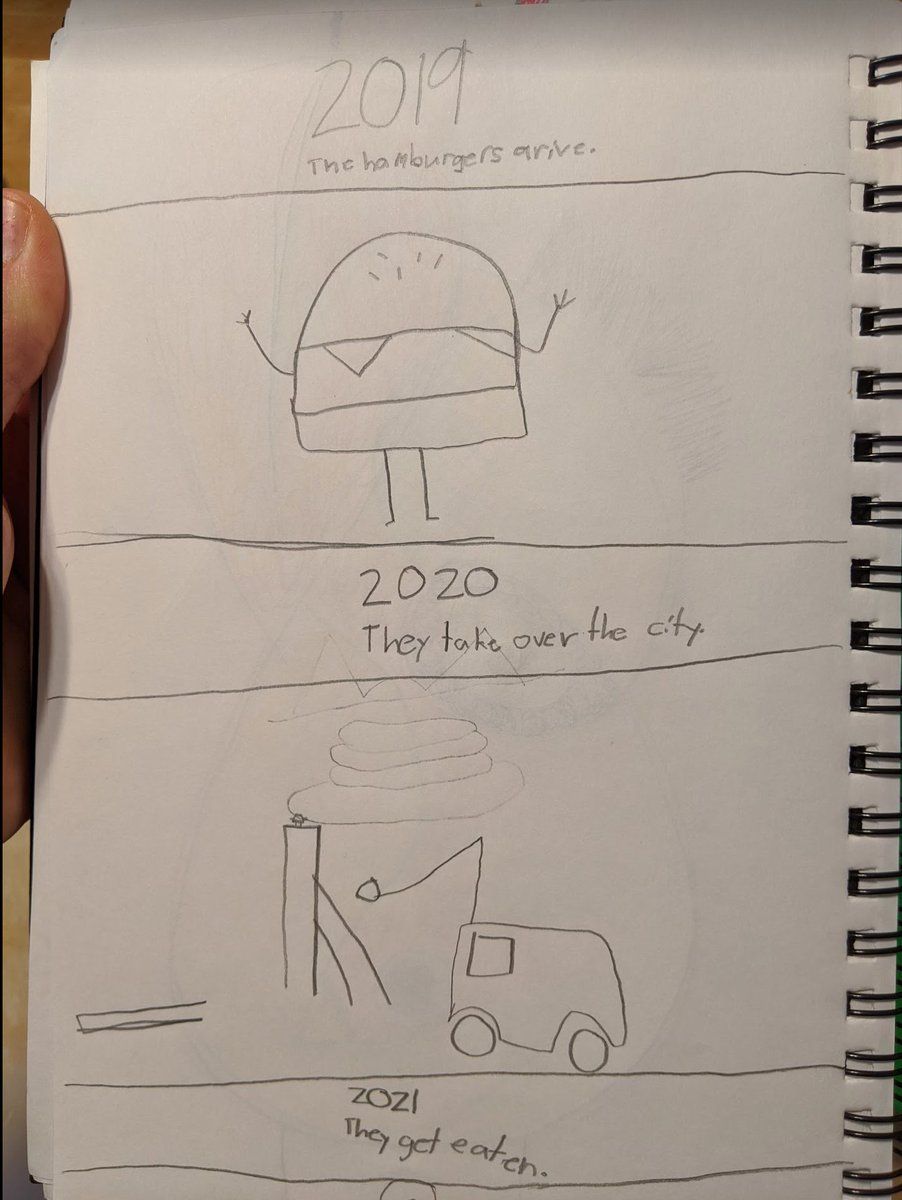 2019
The hamburgers arive.
2020
They take over the city.
2021
They get eaten.